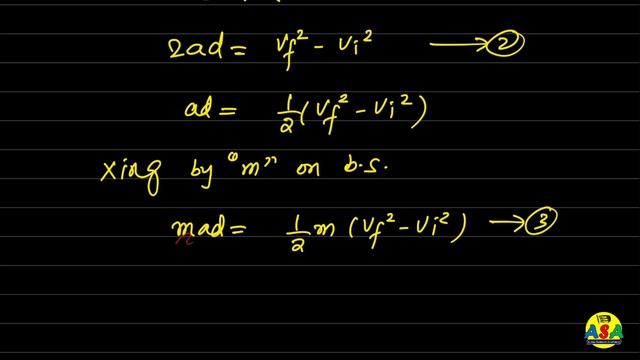 2ad = Vf² - Vi² → ②
ad = 1/2 (Vf² - Vi²)
Xing by "m" on b.s.
mad = 1/2 m (Vf² - Vi²) → ③
ASA